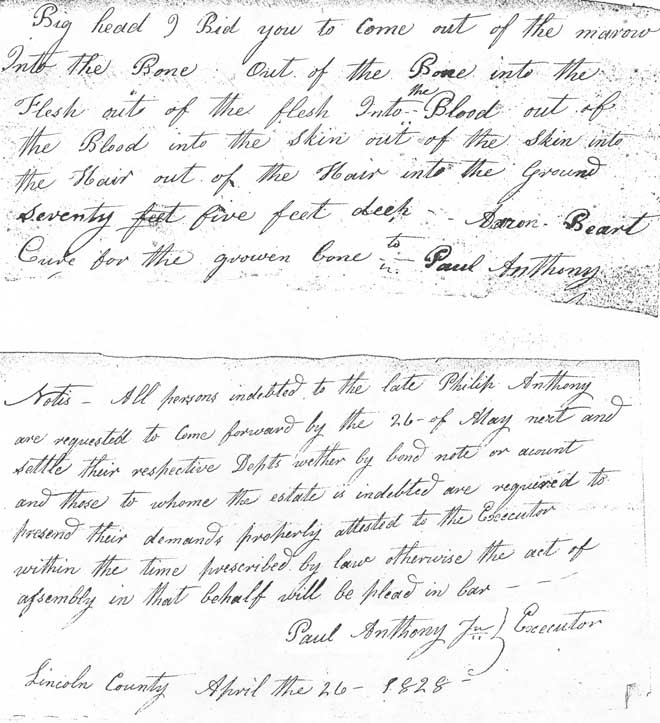 Big head I Bid you to Come out of the marow
Into the Bone Out of the Bone into the
Flesh out of the flesh Into the Blood out of
the Blood into the Skin out of the Skin into
the Hair out of the Hair into the Ground
Seventy feet five feet deep - - Aaron Beart
Cure for the growen bone to Paul Anthony
Notis - All persons indebted to the late Philip Anthony
are requested to Come forward by the 26 - of May next and
settle their respective Depts wether by bond note or acount
and those to whome the estate is indebted are required to
presend their demands properly attested to the Executor
within the time prescribed by law otherwise the act of
assembly in that behalf will be plead in bar - - -
Paul Anthony Ju } Executor
Lincoln County April the 26 - 1828 -